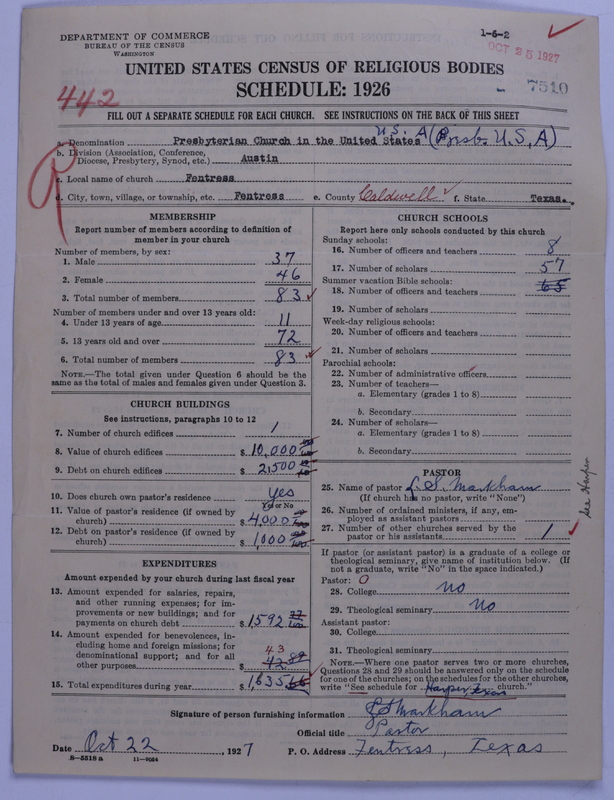 DEPARTMENT OF COMMERCE
BUREAU OF THE CENSUS
WASHINGTON
1-6-2
OCT 25 1927
7510
UNITED STATES CENSUS OF RELIGIOUS BODIES
SCHEDULE: 1926
442
FILL OUT A SEPARATE SCHEDULE FOR EACH CHURCH. SEE INSTRUCTIONS ON THE BACK OF THIS SHEET
a. Denomination Presbyterian Church in the United States U.S.A (Presb. U.S.A)
b. Division (Association, Conference, Diocese, Presbytery, Synod, etc.) Austin
c. Local name of church Fentress
d. City, town, village, or township, etc. Fentress e. County Caldwell f. State Texas.
MEMBERSHIP
Report number of members according to definition of
member in your church
Number of members, by sex:
1. Male 37
2. Female 46
3. Total number of members 83
Number of members under and over 13 years old:
4. Under 13 years of age 11
5. 13 years old and over 72
6. Total number of members 83
NOTE.—The total given under Question 6 should be
the same as the total of males and females given under Question 3.
CHURCH BUILDINGS
See instructions, paragraphs 10 to 12
7. Number of church edifices 1
8. Value of church edifices $ 10,000
9. Debt on church edifices $ 2,500
10. Does church own pastor's residence yes
Yes or No
11. Value of pastor's residence (if owned by
church) $ 4,000
12. Debt on pastor's residence (if owned by
church) $ 1,000
EXPENDITURES
Amount expended by your church during last fiscal year
13. Amount expended for salaries, repairs,
and other running expenses; for im-
provements or new buildings; and for
payments on church debt $ 1592
14. Amount expended for benevolences, in-
cluding home and foreign missions; for
denominational support; and for all
other purposes $ 43
15. Total expenditures during year $ 1,635
CHURCH SCHOOLS
Report here only schools conducted by this church
Sunday schools:
16. Number of officers and teachers 8
17. Number of scholars 57
Summer vacation Bible schools:
18. Number of officers and teachers 65
19. Number of scholars
Week-day religious schools:
20. Number of officers and teachers
21. Number of scholars
Parochial schools:
22. Number of administrative officers
23. Number of teachers—
a. Elementary (grades 1 to 8)
b. Secondary
24. Number of scholars—
a. Elementary (grades 1 to 8)
b. Secondary
PASTOR
25. Name of pastor L. S. Markham
(If church has no pastor, write "None")
26. Number of ordained ministers, if any, em-
ployed as assistant pastors
27. Number of other churches served by the
pastor or his assistants 1
See Harper
If pastor (or assistant pastor) is a graduate of a college or
theological seminary, give name of institution below. (If
not a graduate, write "No" in the space indicated.)
Pastor: 0
28. College no
29. Theological seminary no
Assistant pastor:
30. College
31. Theological seminary
NOTE.—Where one pastor serves two or more churches,
Questions 28 and 29 should be answered only on the schedule
for one of the churches; on the schedules for the other churches,
write "See schedule for Harper, Texas church."
Signature of person furnishing information L S Markham
Official title Pastor
Date Oct 22, 1927 P. O. Address Fentress, Texas
8-5518 a 11-9064